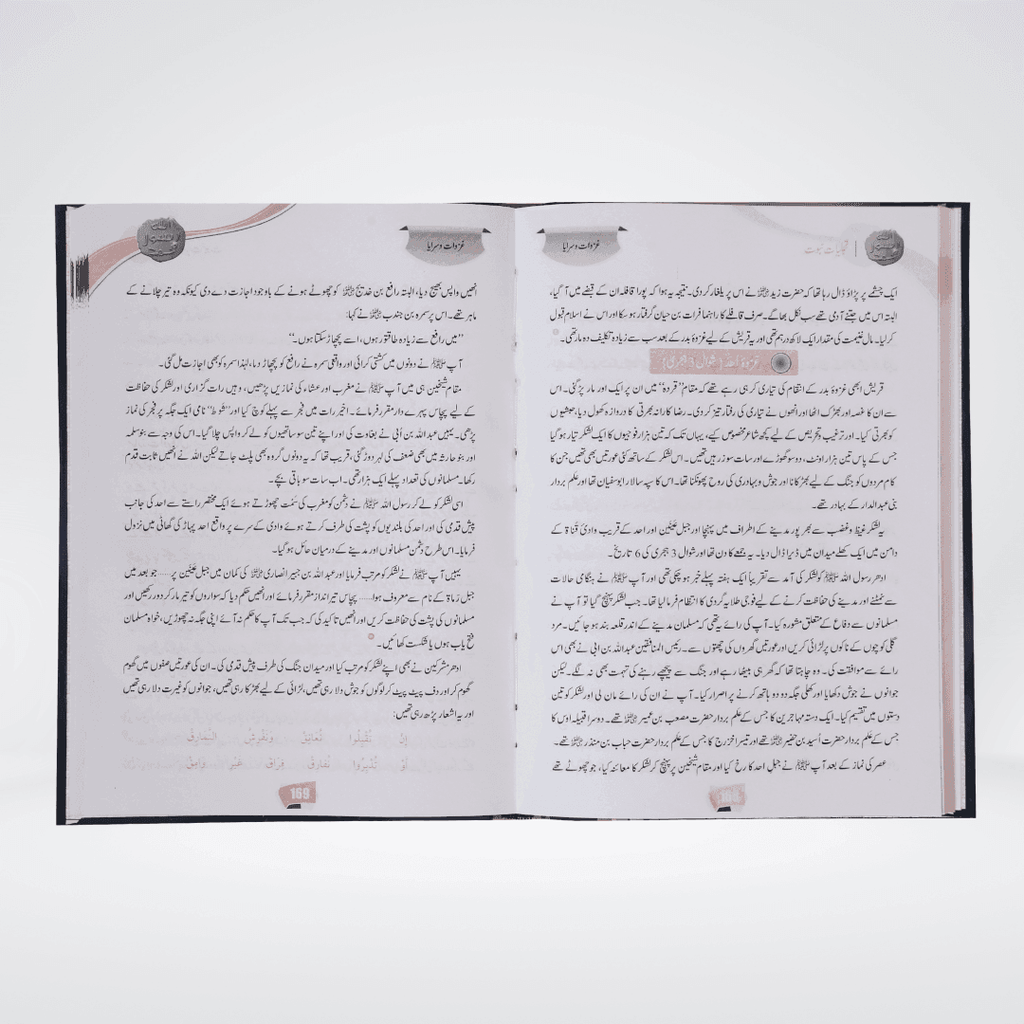 تجلیاتِ نبوت
غزوات و سرایا
ایک چشمے پر پڑاؤ ڈال رہا تھا کہ حضرت زید ؓ نے اس پر یلغار کر دی۔ نتیجہ یہ ہوا کہ پورا قافلہ ان کے قبضے میں آ گیا،
البتہ اس میں جتنے آدمی تھے سب نکل بھاگے۔ صرف قافلے کا راہنما فرات بن حیان گرفتار ہو سکا اور اس نے اسلام قبول
کر لیا۔ مال غنیمت کی مقدار ایک لاکھ درہم تھی اور یہ قریش کے لیے غزوۂ بدر کے بعد سب سے زیادہ تکلیف دہ مار تھی۔
غزوۂ احد (شوال 3 ہجری)
قریش ابھی غزوۂ بدر کے انتقام کی تیاری کر ہی رہے تھے کہ مقام ”قردہ“ میں ان پر ایک اور مار پڑ گئی۔ اس
سے ان کا غصہ اور بھڑک اٹھا اور انھوں نے تیاری کی رفتار تیز کر دی۔ رضا کارانہ بھرتی کا دروازہ کھول دیا، حبشیوں
کو بھرتی کیا۔ اور ترغیب و تحریص کے لیے کچھ شاعر مخصوص کیے، یہاں تک کہ تین ہزار فوجیوں کا ایک لشکر تیار ہو گیا
جس کے پاس تین ہزار اونٹ، دو سو گھوڑے اور سات سو زرہیں تھیں۔ اس لشکر کے ساتھ کئی عورتیں بھی تھیں جن کا
کام مردوں کو جنگ کے لیے بھڑکانا اور جوش و بہادری کی روح پھونکنا تھا۔ اس کا سپہ سالار ابوسفیان تھا اور علم بردار
بنی عبدالدار کے بہادر تھے۔
یہ لشکر غیظ و غضب سے بھر پور مدینے کے اطراف میں پہنچا اور جبل عَیْنَین اور احد کے قریب وادیٔ قَناۃ کے
دامن میں ایک کھلے میدان میں ڈیرا ڈال دیا۔ یہ جمعے کا دن تھا اور شوال 3 ہجری کی 6 تاریخ۔
ادھر رسول اللہ ﷺ کو لشکر کی آمد سے تقریباً ایک ہفتہ پہلے خبر ہو چکی تھی اور آپ ﷺ نے ہنگامی حالات
سے نمٹنے اور مدینے کی حفاظت کرنے کے لیے فوجی طلایہ گردی کا انتظام فرما لیا تھا۔ جب لشکر پہنچ گیا تو آپ نے
مسلمانوں سے دفاع کے متعلق مشورہ کیا۔ آپ کی رائے یہ تھی کہ مسلمان مدینے کے اندر قلعہ بند ہو جائیں۔ مرد
گلی کوچوں کے ناکوں پر لڑائی کریں اور عورتیں گھروں کی چھتوں سے۔ رئیس المنافقین عبداللہ بن ابی نے بھی اس
رائے سے موافقت کی۔ وہ چاہتا تھا کہ گھر ہی بیٹھا رہے اور جنگ سے پیچھے رہنے کی تہمت بھی نہ لگے۔ لیکن
جوانوں نے جوش دکھایا اور کھلی جگہ دو دو ہاتھ کرنے پر اصرار کیا۔ آپ نے ان کی رائے مان لی اور لشکر کو تین
دستوں میں تقسیم کیا۔ ایک دستہ مہاجرین کا جس کے علم بردار حضرت مصعب بن عمیر ؓ تھے۔ دوسرا قبیلہ اوس کا
جس کے علم بردار حضرت اُسید بن حضیر ؓ تھے اور تیسرا خزرج کا جس کے علم بردار حضرت حباب بن منذر ؓ تھے۔
عصر کی نماز کے بعد آپ ﷺ نے جبل احد کا رخ کیا اور مقام شیخین پر پہنچ کر لشکر کا معائنہ کیا، جو چھوٹے تھے
168
غزوات و سرایا
انھیں واپس بھیج دیا، البتہ رافع بن خدیج ؓ کو چھوٹے ہونے کے باوجود اجازت دے دی کیونکہ وہ تیر چلانے کے
ماہر تھے۔ اس پر سمرہ بن جندب ؓ نے کہا:
”میں رافع سے زیادہ طاقتور ہوں، اسے پچھاڑ سکتا ہوں۔“
آپ ﷺ نے دونوں میں کشتی کرائی اور واقعی سمرہ نے رافع کو پچھاڑ دیا، لہٰذا سمرہ کو بھی اجازت مل گئی۔
مقام شیخین ہی میں آپ ﷺ نے مغرب اور عشاء کی نمازیں پڑھیں، وہیں رات گزاری اور لشکر کی حفاظت
کے لیے پچاس پہرے دار مقرر فرمائے۔ اخیر رات میں فجر سے پہلے کوچ کیا اور ”شوط“ نامی ایک جگہ پر فجر کی نماز
پڑھی۔ یہیں عبداللہ بن اُبی نے بغاوت کی اور اپنے تین سو ساتھیوں کو لے کر واپس چلا گیا۔ اس کی وجہ سے بنو سلمہ
اور بنو حارثہ میں بھی ضعف کی لہر دوڑ گئی، قریب تھا کہ یہ دونوں گروہ بھی پلٹ جاتے لیکن اللہ نے انھیں ثابت قدم
رکھا۔ مسلمانوں کی تعداد پہلے ایک ہزار تھی۔ اب سات سو باقی بچے۔
اسی لشکر کو لے کر رسول اللہ ﷺ نے دشمن کو مغرب کی سَمت چھوڑتے ہوئے ایک مختصر راستے سے احد کی جانب
پیش قدمی کی اور احد کی بلندیوں کو پشت کی طرف کرتے ہوئے وادی کے سرے پر واقع احد پہاڑ کی گھاٹی میں نزول
فرمایا۔ اس طرح دشمن مسلمانوں اور مدینے کے درمیان حائل ہو گیا۔
یہیں آپ ﷺ نے لشکر کو مرتب فرمایا اور عبداللہ بن جبیر انصاری ؓ کی کمان میں جبل عَیْنَین پر ...... جو بعد میں
جبل رُماۃ کے نام سے معروف ہوا ...... پچاس تیر انداز مقرر فرمائے اور انھیں حکم دیا کہ سواروں کو تیر مار کر دور رکھیں اور
مسلمانوں کی پشت کی حفاظت کریں اور انھیں تاکید کی کہ جب تک آپ کا حکم نہ آئے اپنی جگہ نہ چھوڑیں، خواہ مسلمان
فتح یاب ہوں یا شکست کھائیں۔
ادھر مشرکین نے بھی اپنے لشکر کو مرتب کیا اور میدان جنگ کی طرف پیش قدمی کی۔ ان کی عورتیں صفوں میں گھوم
گھوم کر اور دف پیٹ پیٹ کر لوگوں کو جوش دلا رہی تھیں، لڑائی کے لیے بھڑکا رہی تھیں، جوانوں کو غیرت دلا رہی تھیں
اور یہ اشعار پڑھ رہی تھیں:
إِنْ تُقْبِلُوا نُعَانِقْ وَنَفْرِشُ النَّمَارِقْ
أَوْ تُدْبِرُوا نُفَارِقْ فِرَاقَ غَيْرِ وَامِقْ
169